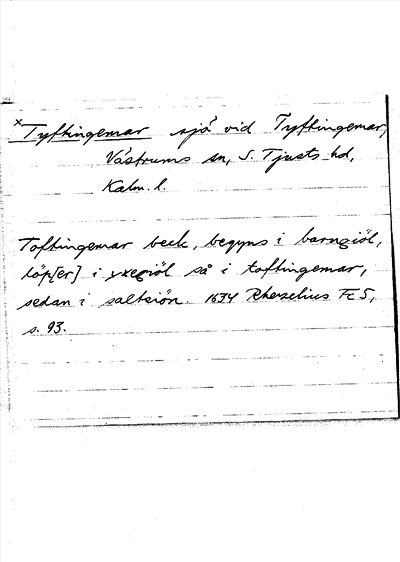 × Tyftingemar sjö vid Tyftingemar,
Västrums sn, S. Tjusts hd,
Kalm. l.
Toftingemar beck, begyns i barngiöl,
löp[er] i yxegiöl så i toftingemar,
sedan i saltsiön. 1634 Rhezelius FcS,
s. 93.